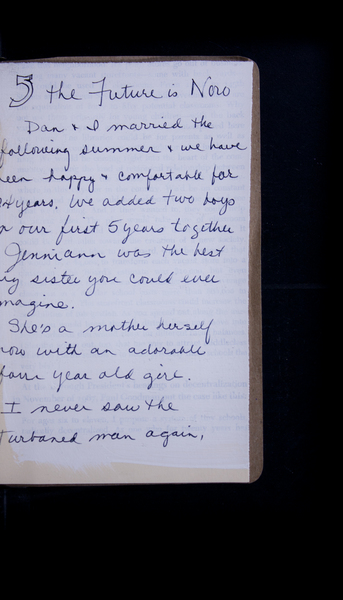 5 the Future is Now
Dan & I married the
following summer & we have
een happy & comfortable for
24 years. We added two boys
n our first 5 years together
Jenniann was the best
ig sister you could ever
magine.
She's a mother herself
now with an adorable
four year old girl.
I never saw the
turbaned man again,